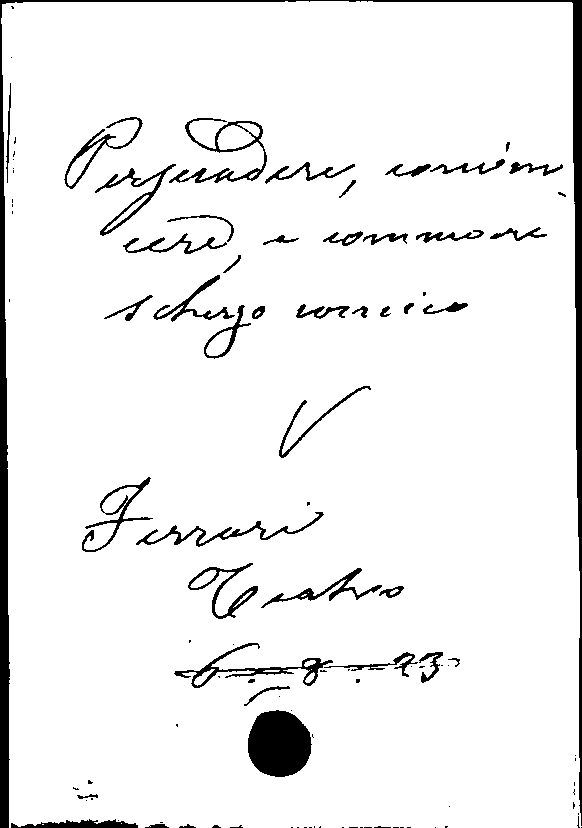 Persuadere, convin
cere, e commovere
scherzo comico
V
Ferrari
Teatro
6. 8. 23